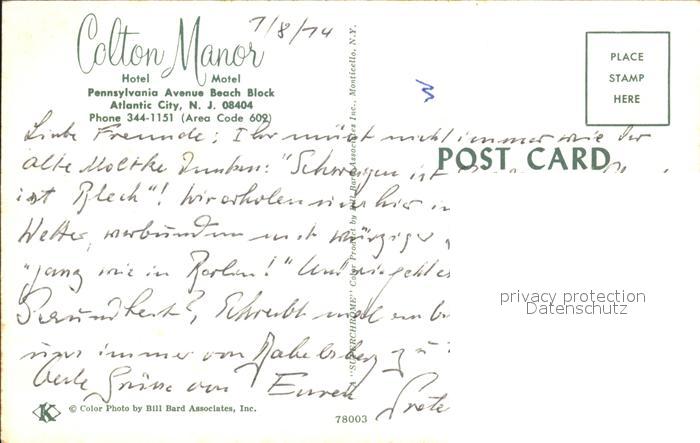 Colton Manor
Hotel Motel
Pennsylvania Avenue Beach Block
Atlantic City, N. J. 08404
Phone 344-1151 (Area Code 609)
7/8/74
PLACE
STAMP
HERE
POST CARD
Liebe Freunde: Ihr müsst nicht immer wie der
alte Moltke denken: "Schweigen ist
ist Blech"! Wir erholen uns hier
Wetter, verbunden mit würziger
"ganz wie in Berlin!" Und wie geht es
Gesundheit? Schreibt mal
uns immer von Babelsberg zu
Viele Grüsse von Euren Grete
"SUPERCHROME" Color Product by Bill Bard Associates Inc., Monticello, N.Y.
privacy protection
Datenschutz
K
© Color Photo by Bill Bard Associates, Inc.
78003